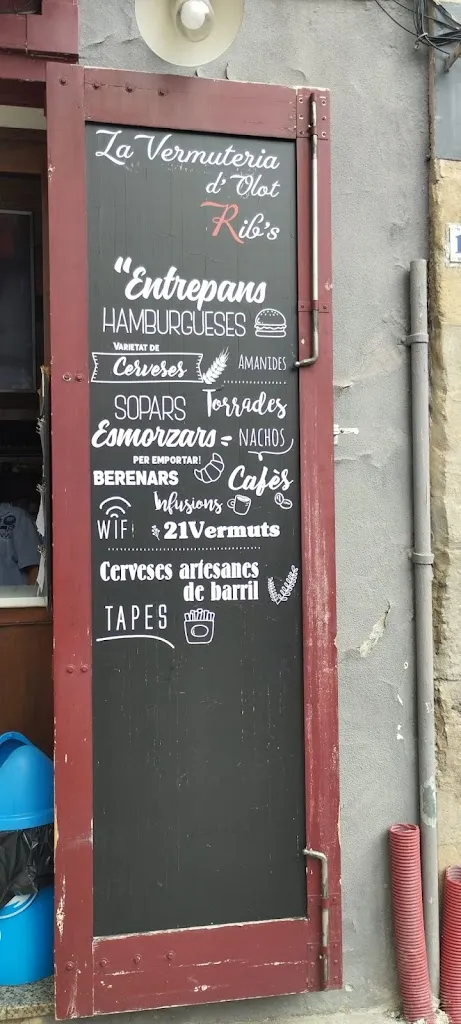 La Vermuteria
d'Olot
Rib's
"Entrepans
HAMBURGUESES
VARIETAT DE
Cerveses
AMANIDES
SOPARS Torrades
Esmorzars - NACHOS
PER EMPORTAR!
BERENARS Cafès
Infusions
WIFI 21Vermuts
Cerveses artesanes
de barril
TAPES